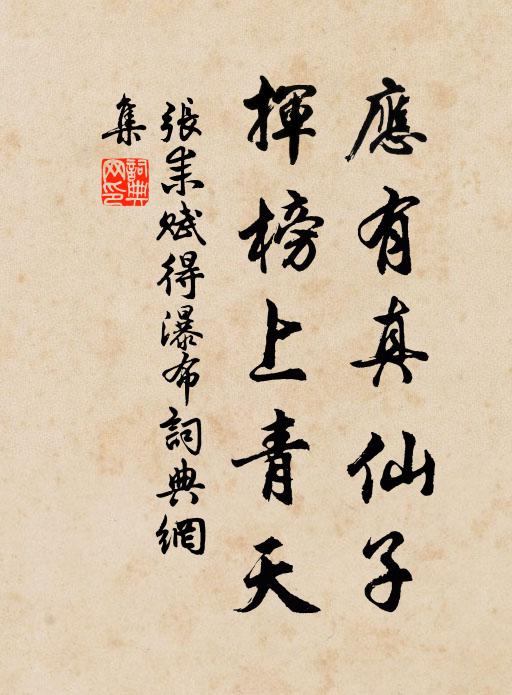 應有真仙子
揮榜上青天
張耒賦得瀑布詞典網
集
詞典網印